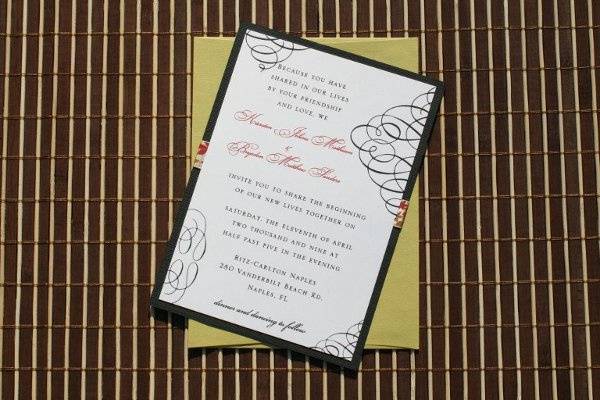 Because you have
shared in our lives
by your friendship
and love, we
&
Matthew
invite you to share the beginning
of our new lives together on
Saturday, the eleventh of April
two thousand and nine at
half past five in the evening
Ritz-Carlton Naples
280 Vanderbilt Beach Rd.
Naples, FL
dinner and dancing to follow